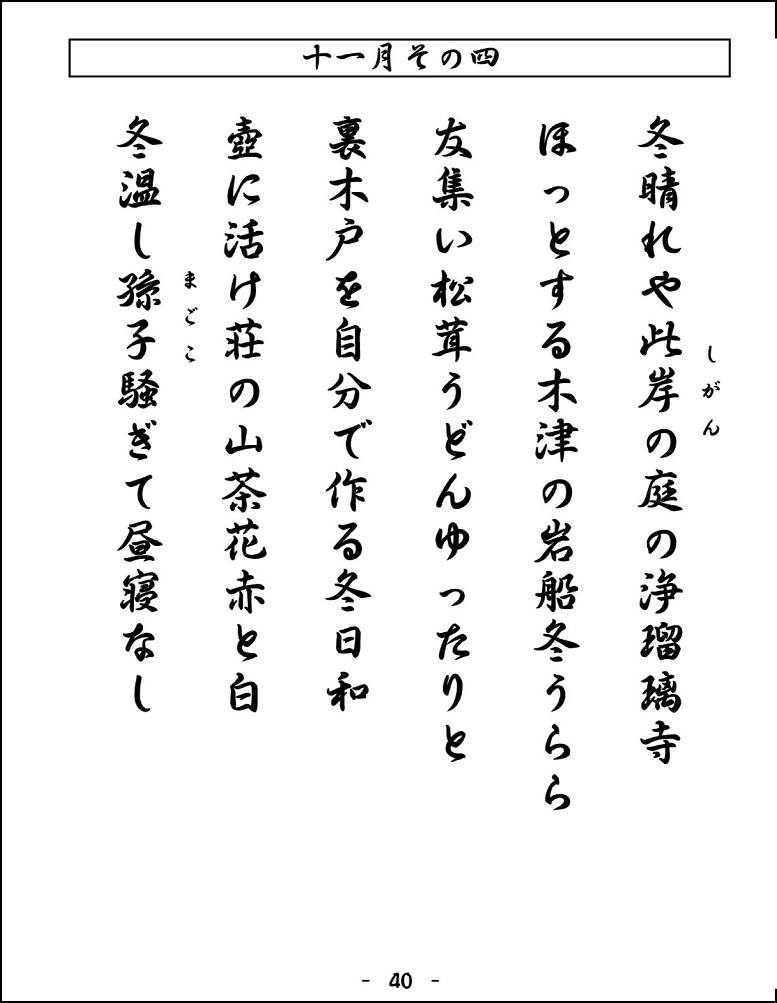 十一月その四
冬晴れや此岸の庭の浄瑠璃寺
しがん
ほっとする木津の岩船冬うらら
友集い松茸うどんゆったりと
裏木戸を自分で作る冬日和
壺に活け荘の山茶花赤と白
冬温し孫子騒ぎて昼寝なし
まごこ
- 40 -